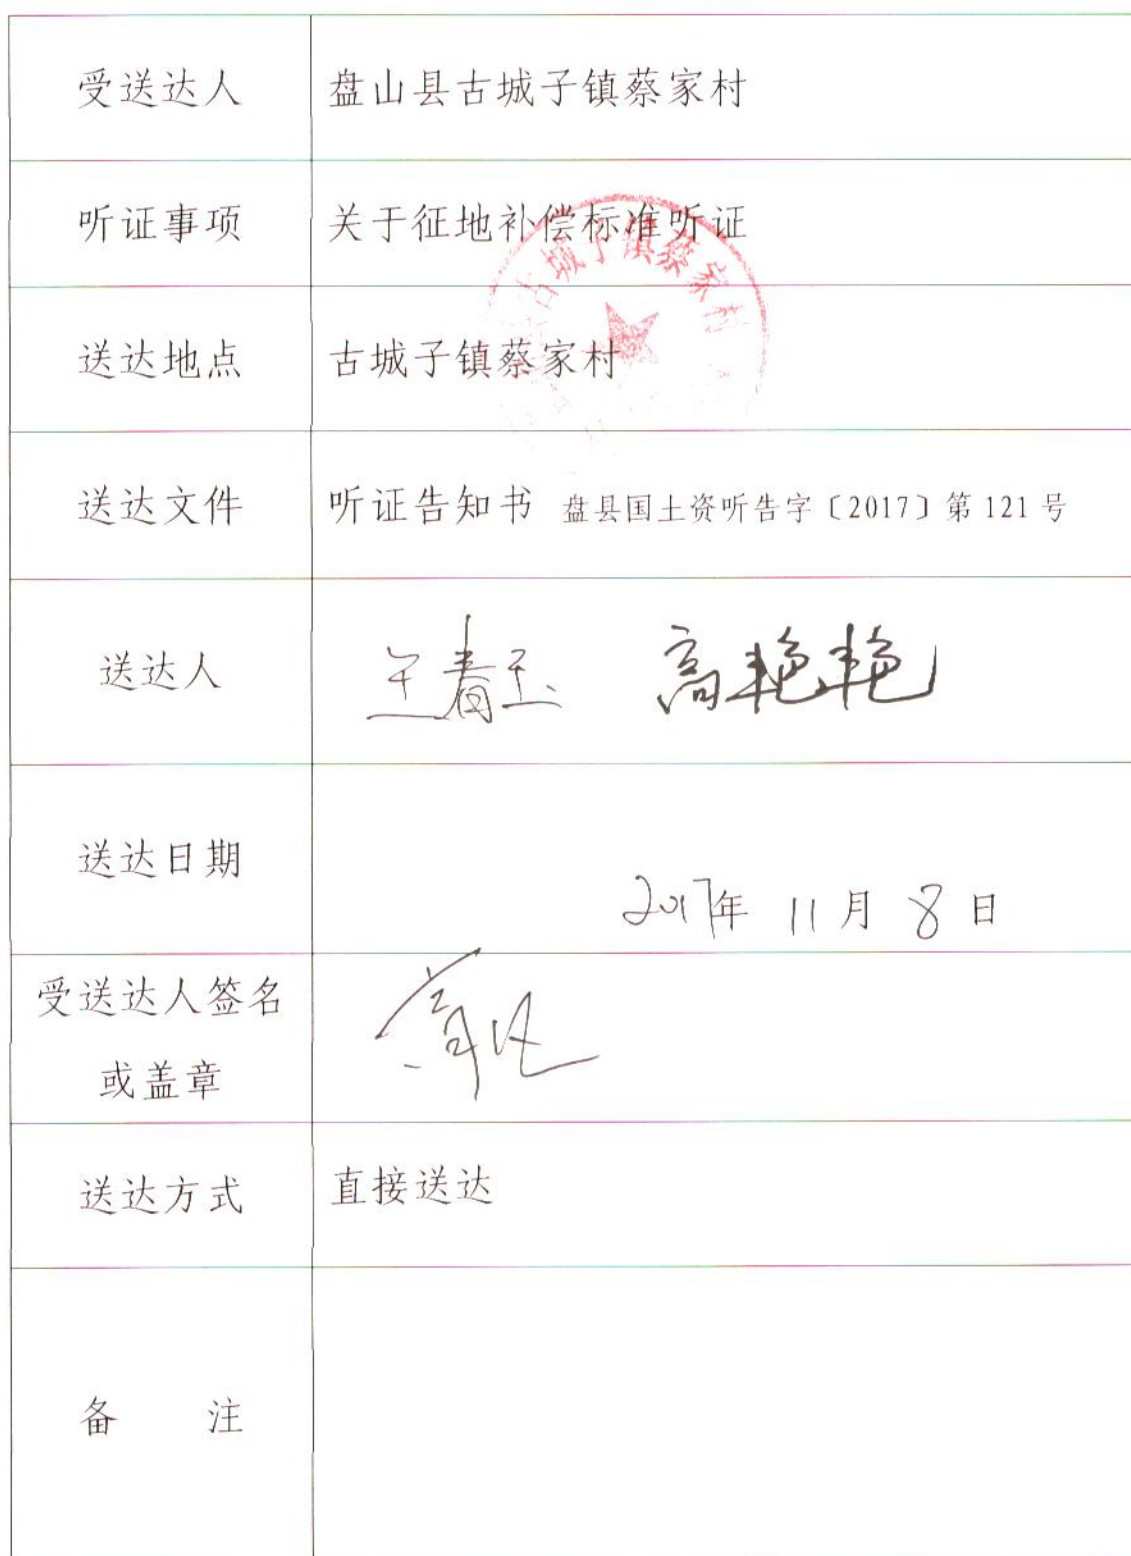 受送达人 盘山县古城子镇蔡家村
听证事项 关于征地补偿标准听证
古城子镇蔡家村
送达地点 古城子镇蔡家村
送达文件 听证告知书 盘县国土资听告字〔2017〕第 121 号
送达人 王春玉 高艳艳
送达日期
2017年 11月 8日
受送达人签名
或盖章
送达方式 直接送达
备 注